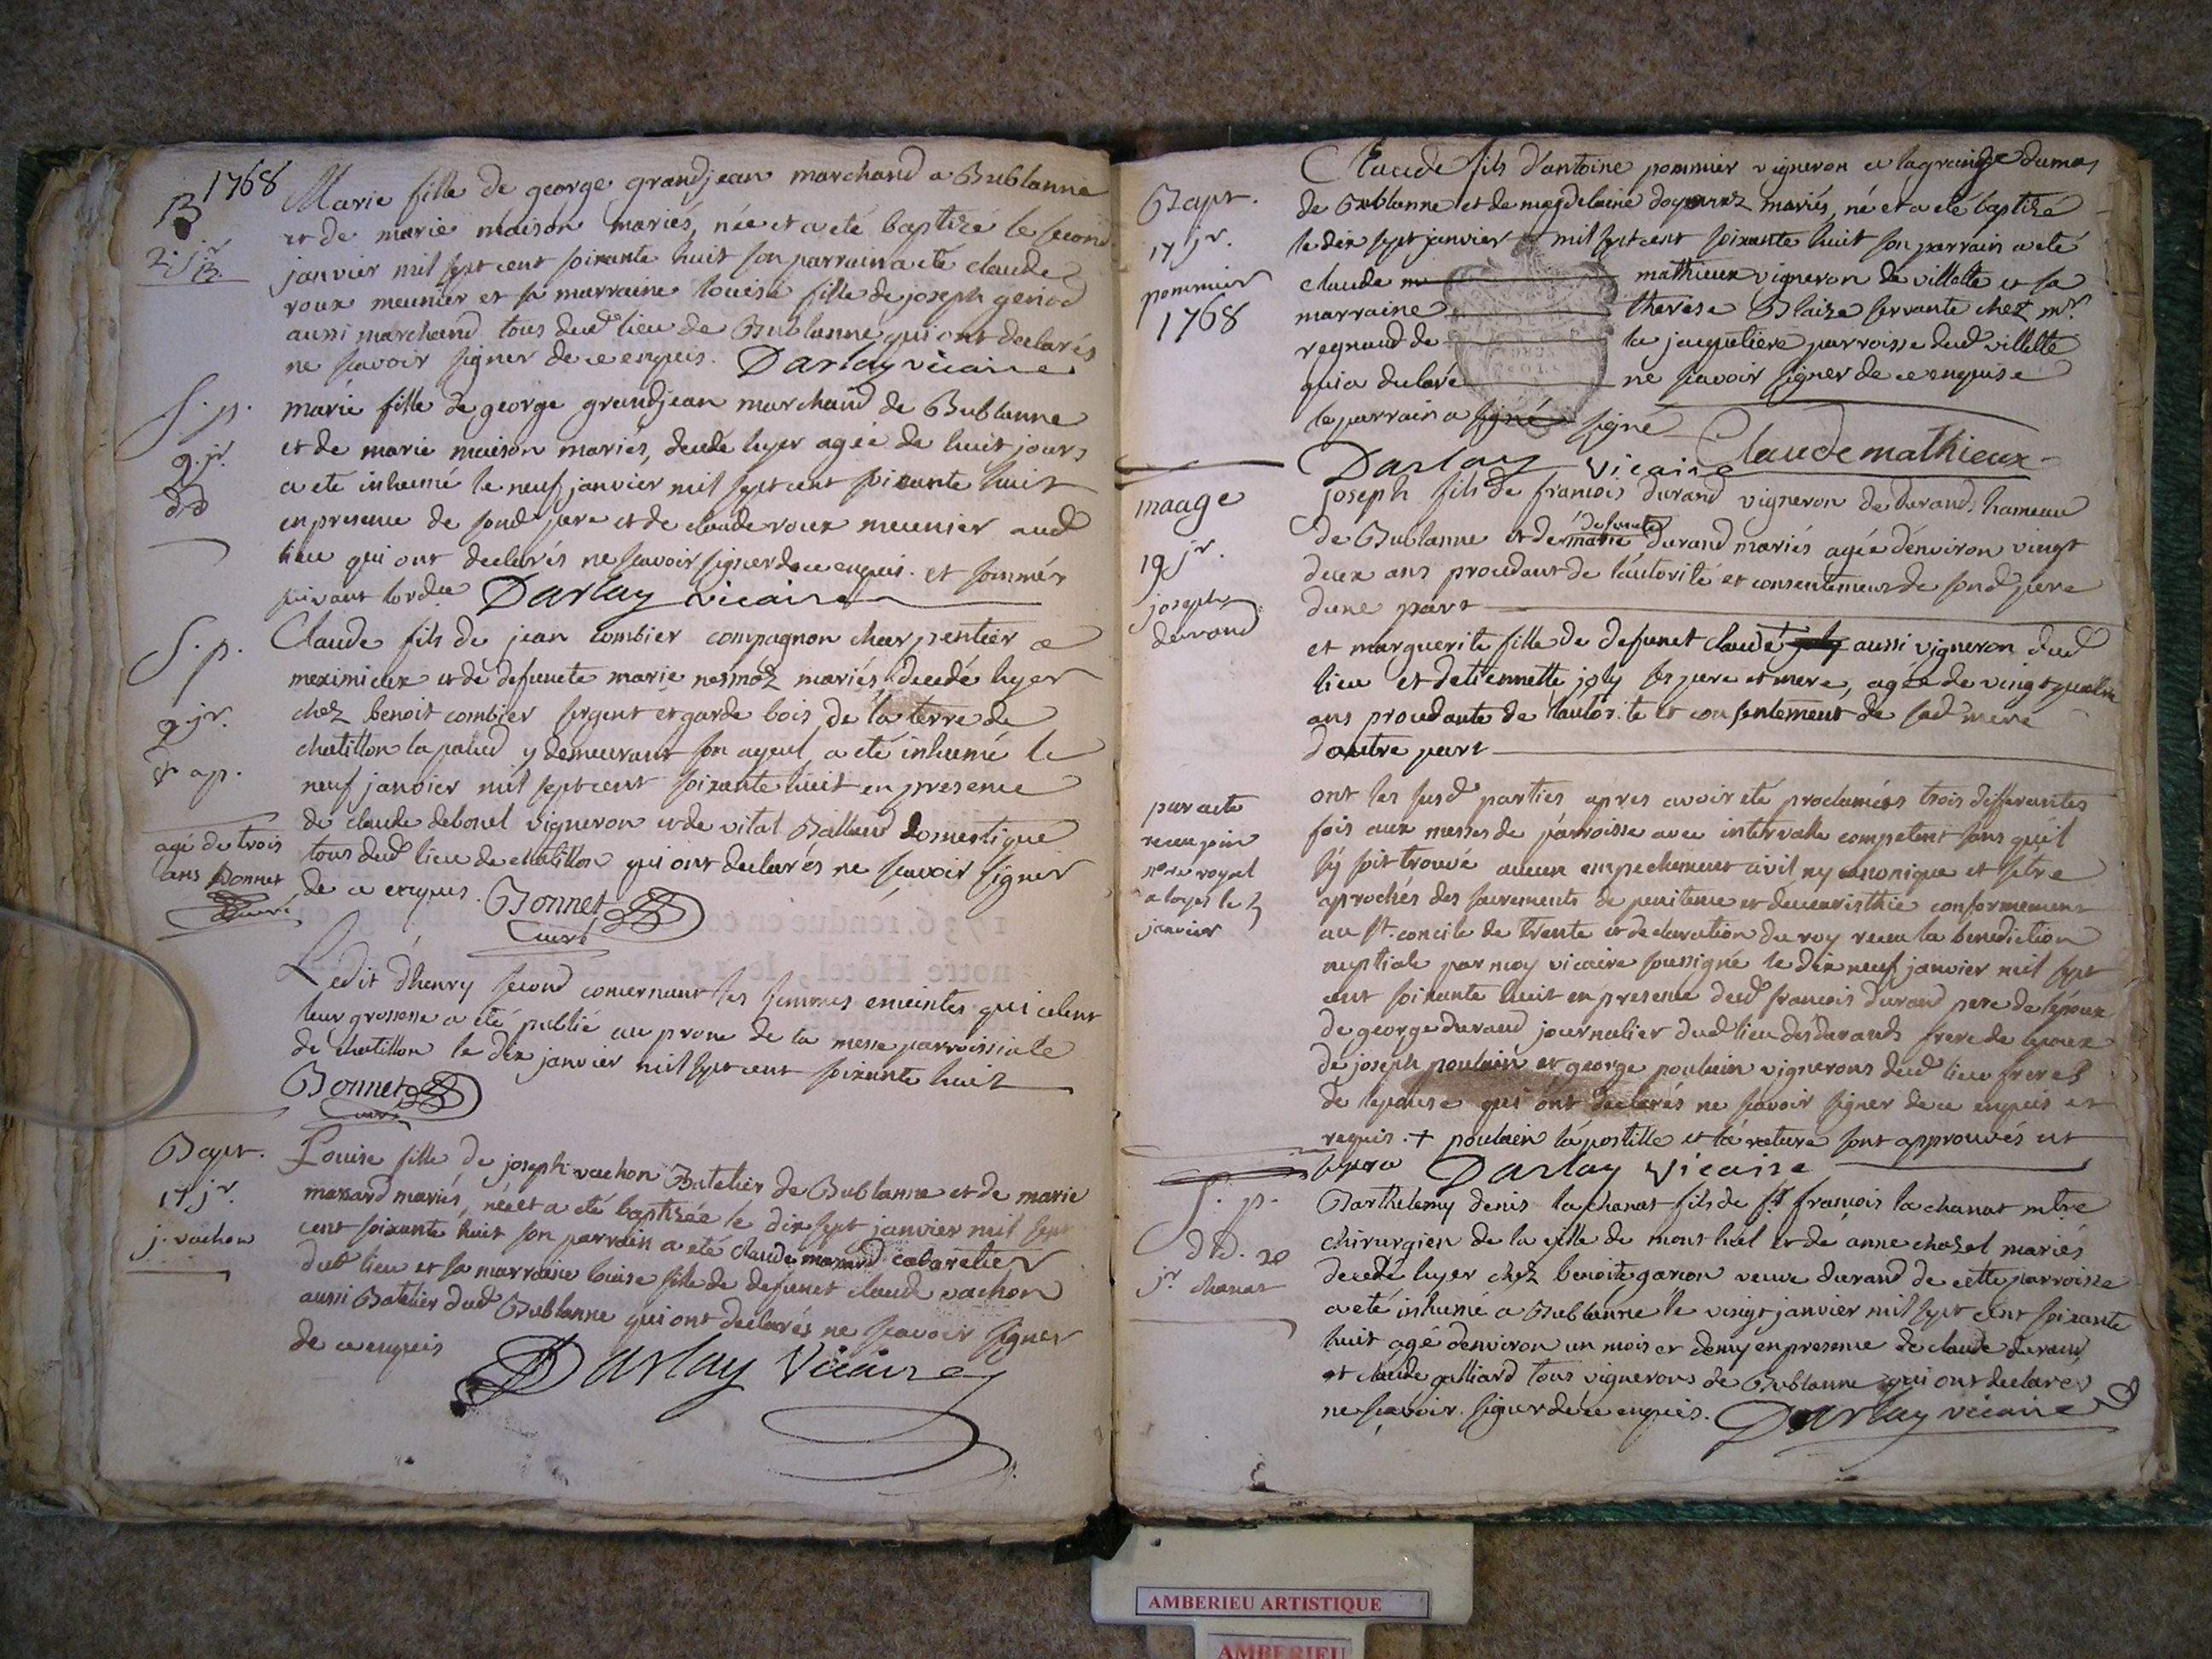 1768
B
2. jr
B
Marie fille de george grandjean marchand a Bublanne
et de marie maison mariés, née et a eté baptisé le second
janvier mil sept cent soixante huit son parrain a eté claude
roux meunier et sa marraine louise fille de joseph geniod
aussi marchand tous dud lieu de Bublanne qui ont declarés
ne scavoir signer de ce enquis. Darlay vicaire
S. p.
9. jr.
dd
marie fille de george grandjean marchand de Bublanne
et de marie maison mariés, decede hyer agée de huit jours
a eté inhumé le neuf janvier mil sept cent soixante huit
en presence de sond pere et de claude roux meunier aud
lieu qui ont declarés ne scavoir signer de ce enquis. et sommés
suivant lordce Darlay vicaire
S. p.
9 jr.
& ap.
agé de trois
ans Bonnet
curé
Claude fils de jean combier compagnon charpentier a
meximieux et de defuncte marie nesmoz mariés, decedé hyer
chez benoit combier sergent et garde bois de la terre de
chatillon la palud y demeurant son ayeul a eté inhumé le
neuf janvier mil sept cent soixante huit en presence
de claude debonel vigneron et de vital Ballaud domestique
tous dud lieu de chatillon qui ont declarés ne scavoir signer
de ce enquis. Bonnet
curé
Ledit d'henry second concernant les femmes enceintes qui celent
leur grossesse a eté publié au prone de la messe parroissiale
de chatillon le dix janvier mil sept cent soixante huit
Bonnet
curé
Bapt.
17 jr.
j. vachon
Louise fille de joseph vachon Batelier de Bublanne et de marie
massard mariés, née et a eté baptisée le dix sept janvier mil sept
cent soixante huit son parrain a eté claude massard cabaretier
dud lieu et sa marraine louise fille de defunct claude vachon
aussi Batelier dud Bublanne qui ont declarés ne scavoir signer
de ce enquis
Darlay Vicaire
Bapt.
17 jr.
pommier
1768
Claude fils d'antoine pommier vigneron a lagrange dumas
de Bublanne et de magdelaine mariés, né et a eté baptisé
le dix sept janvier mil sept cent soixante huit son parrain a eté
claude m mathieux vigneron de villette et sa
marraine therese Blaise servante chez mr.
regnaud de la jacquetiere parroisse dud villette
qui a declaré ne scavoir signer de ce enquise
le parrain a signé signé Claude mathieux
Darlay Vicaire
maage
19 jr.
joseph
durand
joseph fils de francois durand vigneron des durands hameau
defuncte
de Bublanne et de marie durand mariés agée d'environ vingt
deux ans procedant de l'autorité et consentement de sond pere
dune part
et marguerite fille de defunct claude + joly aussi vigneron dud
lieu et detiennette joly ses pere et mere, agée de vingt quatre
ans procedante de lautorité et consentement de sad mere
dautre part
par acte
receu pin
nore royal
a loyes le 3
janvier
ont les susd parties apres avoir eté proclamées trois differentes
fois aux messes de parroisse avec intervalle competent sans quil
sy soit trouvé aucun empechement civil ny canonique et setre
aprochés des sacrements de penitence et deucaristhie conformement
au st. concile de trente et declaration du roy receu la benediction
nuptiale par moy vicaire soussigné le dix neuf janvier mil sept
cent soixante huit en presence dud francois durand pere de lepoux
de george durand journalier dud lieu des durands frere de lepoux
de joseph poulain et george poulain vignerons dud lieu freres
de lepouse qui ont declarés ne scavoir signer de ce enquis et
requis. + poulain lapostille et la rature sont approuvés ut
supra Darlay Vicaire
S. p.
dd. 20
jr chanat
Barthelemy denis la chanat fils de sr francois la chanat mtre
chirurgien de la ville de mont luel et de anne chozel mariés
decedé hyer chez benoite garcon veuve durand de cette parroisse
a eté inhumé a Bublanne le vingt janvier mil sept cent soixante
huit agé denviron un mois et demy en presence de claude durand
et claude galliard tous vignerons de Bublanne qui ont declarés
ne scavoir signer de ce enquis. Darlay vicaire
AMBERIEU ARTISTIQUE
AMBERIEU